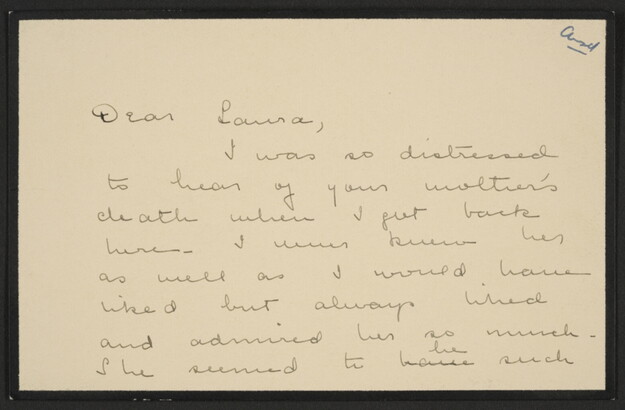 Ansd
Dear Laura,
I was so distressed
to hear of your mother's
death when I got back
here - I never knew her
as well as I would have
liked but always liked
and admired her so much -
be
She seemed to have such